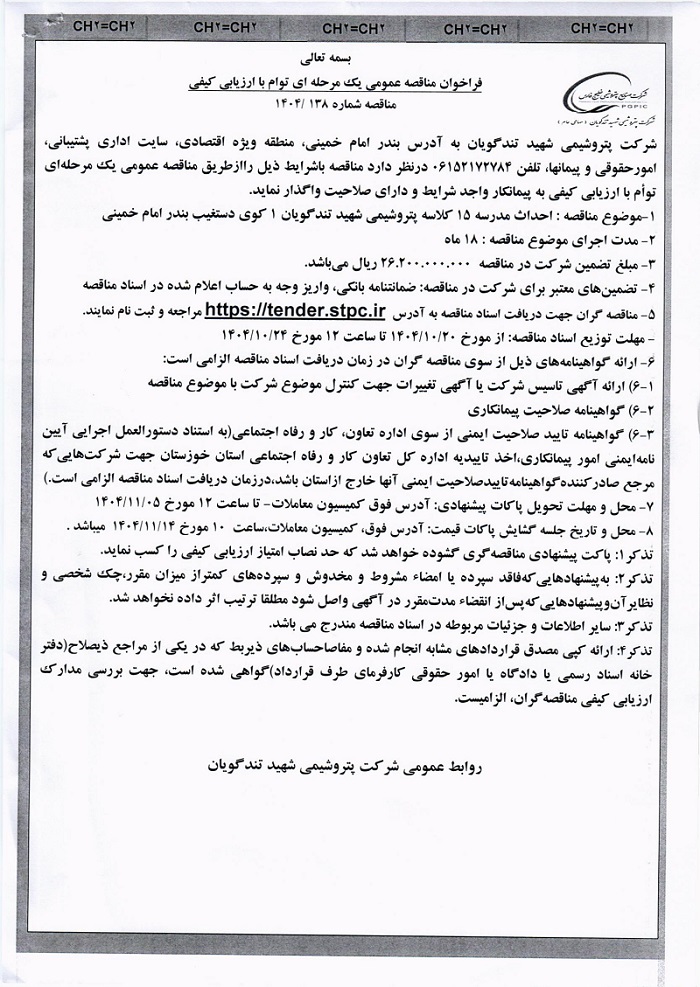 CH۲=CH۲ CH۲=CH۲ CH۲=CH۲ CH۲=CH۲ CH۲=CH۲
بسمه تعالی
فراخوان مناقصه عمومی یک مرحله ای توام با ارزیابی کیفی
مناقصه شماره ۱۳۸ /۱۴۰۴
شرکت صنایع پتروشیمی خلیج فارس
PGPIC
شرکت پتروشیمی شهید تندگویان (سهامی عام)
شرکت پتروشیمی شهید تندگویان به آدرس بندر امام خمینی، منطقه ویژه اقتصادی، سایت اداری پشتیبانی،
امورحقوقی و پیمانها، تلفن ۰۶۱۵۲۱۷۲۷۸۴ درنظر دارد مناقصه باشرایط ذیل راازطریق مناقصه عمومی یک مرحله‌ای
توأم با ارزیابی کیفی به پیمانکار واجد شرایط و دارای صلاحیت واگذار نماید.
۱-موضوع مناقصه : احداث مدرسه ۱۵ کلاسه پتروشیمی شهید تندگویان ۱ کوی دستغیب بندر امام خمینی
۲- مدت اجرای موضوع مناقصه : ۱۸ ماه
۳- مبلغ تضمین شرکت در مناقصه ۲۶.۲۰۰.۰۰۰.۰۰۰ ریال می‌باشد.
۴- تضمین‌های معتبر برای شرکت در مناقصه: ضمانتنامه بانکی، واریز وجه به حساب اعلام شده در اسناد مناقصه
۵- مناقصه گران جهت دریافت اسناد مناقصه به آدرس https://tender.stpc.ir مراجعه و ثبت نام نمایند.
- مهلت توزیع اسناد مناقصه: از مورخ ۱۴۰۴/۱۰/۲۰ تا ساعت ۱۲ مورخ ۱۴۰۴/۱۰/۲۴
۶- ارائه گواهینامه‌های ذیل از سوی مناقصه گران در زمان دریافت اسناد مناقصه الزامی است:
۶-۱) ارائه آگهی تاسیس شرکت یا آگهی تغییرات جهت کنترل موضوع شرکت با موضوع مناقصه
۶-۲) گواهینامه صلاحیت پیمانکاری
۶-۳) گواهینامه تایید صلاحیت ایمنی از سوی اداره تعاون، کار و رفاه اجتماعی(به استناد دستورالعمل اجرایی آیین
نامه‌ایمنی امور پیمانکاری،اخذ تاییدیه اداره کل تعاون کار و رفاه اجتماعی استان خوزستان جهت شرکت‌هایی‌که
مرجع صادرکننده‌گواهینامه‌تاییدصلاحیت ایمنی آنها خارج ازاستان باشد،درزمان دریافت اسناد مناقصه الزامی است.)
۷- محل و مهلت تحویل پاکات پیشنهادی: آدرس فوق کمیسیون معاملات- تا ساعت ۱۲ مورخ ۱۴۰۴/۱۱/۰۵
۸- محل و تاریخ جلسه گشایش پاکات قیمت: آدرس فوق، کمیسیون معاملات،ساعت ۱۰ مورخ ۱۴۰۴/۱۱/۱۴ میباشد .
تذکر۱: پاکت پیشنهادی مناقصه‌گری گشوده خواهد شد که حد نصاب امتیاز ارزیابی کیفی را کسب نماید.
تذکر۲: به‌پیشنهادهایی‌که‌فاقد سپرده یا امضاء مشروط و مخدوش و سپرده‌های کمتراز میزان مقرر،چک شخصی و
نظایرآن‌وپیشنهادهایی‌که‌پس‌از انقضاء مدت‌مقرر در آگهی واصل شود مطلقا ترتیب اثر داده نخواهد شد.
تذکر۳: سایر اطلاعات و جزئیات مربوطه در اسناد مناقصه مندرج می باشد.
تذکر۴: ارائه کپی مصدق قراردادهای مشابه انجام شده و مفاصاحساب‌های ذیربط که در یکی از مراجع ذیصلاح(دفتر
خانه اسناد رسمی یا دادگاه یا امور حقوقی کارفرمای طرف قرارداد)گواهی شده است، جهت بررسی مدارک
ارزیابی کیفی مناقصه‌گران، الزامیست.
روابط عمومی شرکت پتروشیمی شهید تندگویان